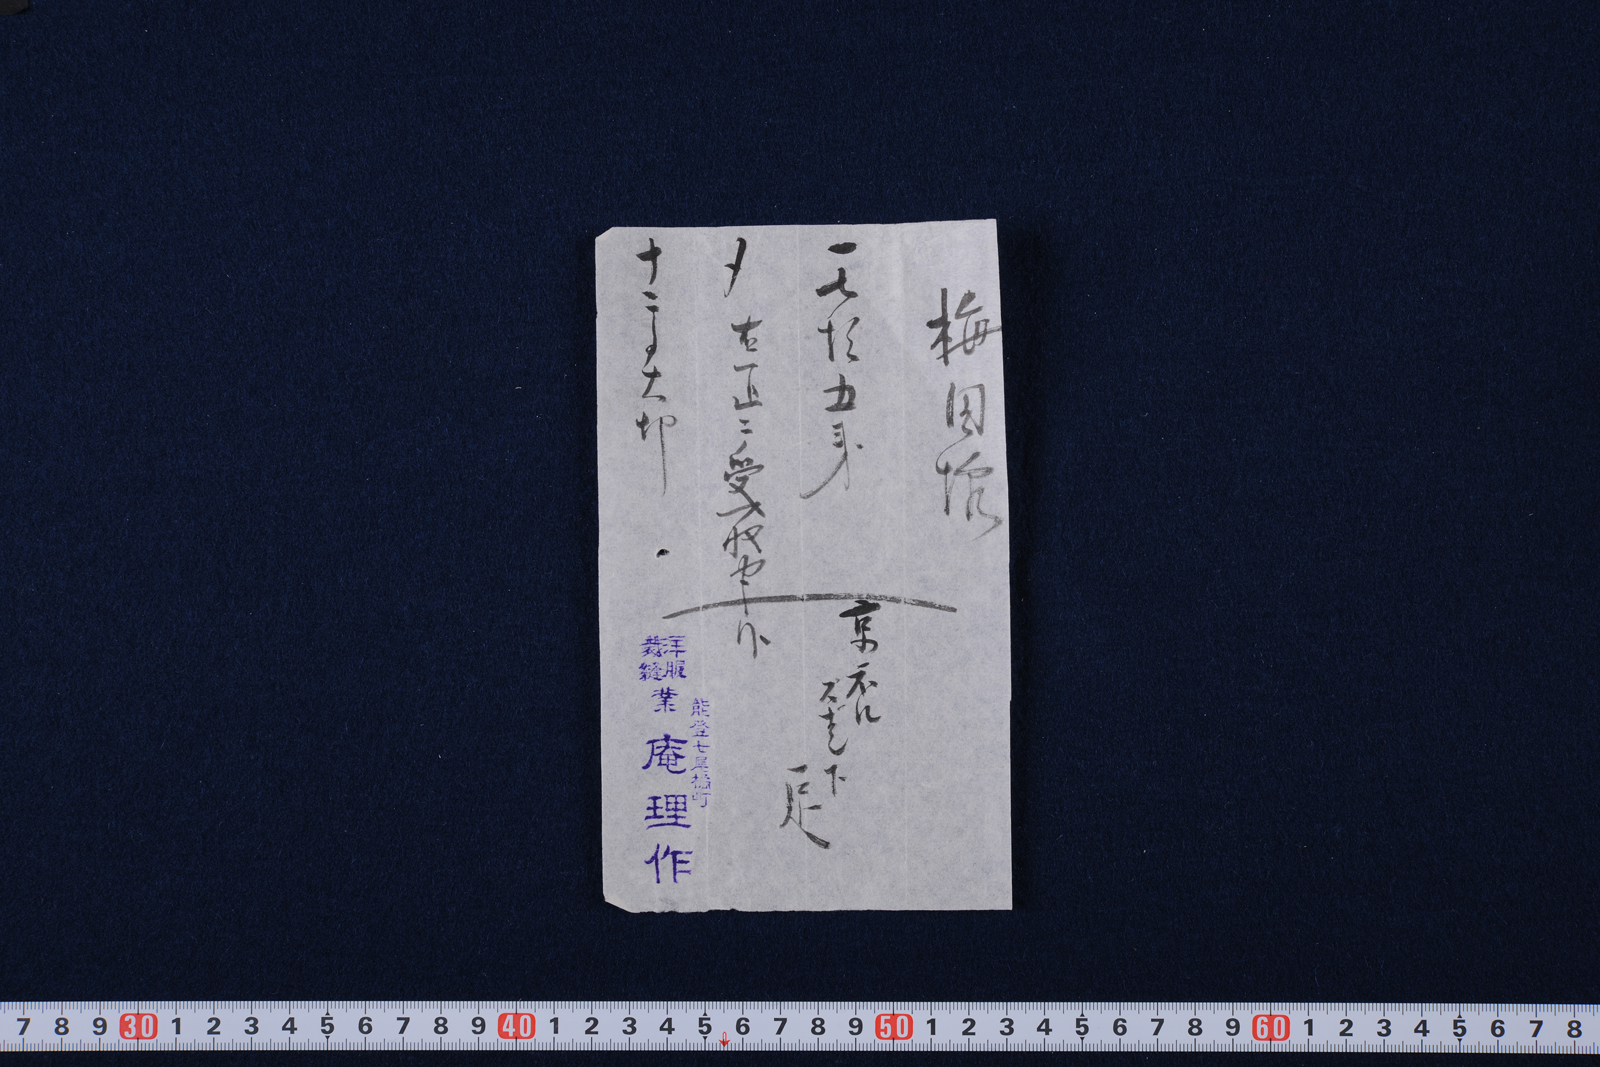 梅田様
一七拾五銭
京
下
一足
〆
右正ニ受取申候
十二月大卯
能登七尾橘町
洋服
裁縫
業
庵理作
7 8 9 30 1 2 3 4 5 6 7 8 9 40 1 2 3 4 5 6 7 8 9 50 1 2 3 4 5 6 7 8 9 60 1 2 3 4 5 6 7 8